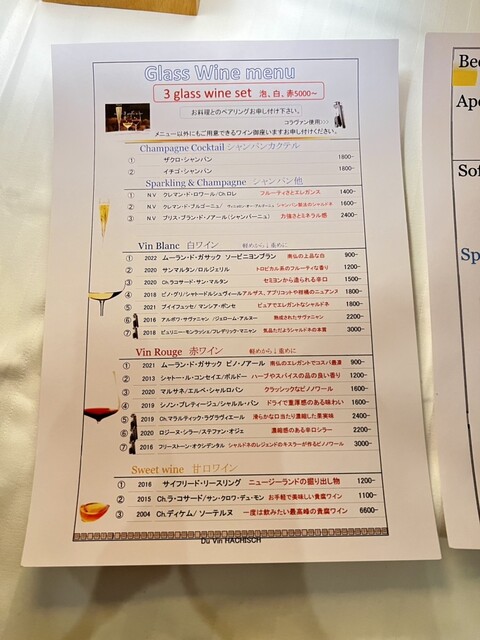 Glass Wine menu
3 glass wine set 泡、白、赤5000～
お料理とのペアリングお申し付け下さい。
コラヴァン使用>>>
メニュー以外にもご用意できるワイン御座いますお申し付けください。
Champagne Cocktail シャンパンカクテル
① ザクロ・シャンパン 1800-
② イチゴ・シャンパン 1800-
Sparkling & Champagne シャンパン他
① N.V クレマン・ド・ロワール/Ch.ロレ フルーティさとエレガンス 1400-
② N.V クレマン・ド・ブルゴーニュ/ シャンパン製法のシャルドネ 1600-
③ N.V ブリス・ブラン・ド・ノアール(シャンパーニュ) 力強さとミネラル感 2400-
Vin Blanc 白ワイン 軽めから↓重めに
① 2022 ムーラン・ド・ガサック ソービニヨンブラン 南仏の上品な白 900-
② 2020 サンマルタン/ロルジェリル トロピカル系のフルーティな香り 1200-
③ 2020 Ch.ラコサード・サン・マルタン セミヨンから造られる辛口 1500-
④ 2018 ピノ・グリ/シャトードルシュヴィール アルザス、アプリコットや柑橘のニュアンス 1800-
⑤ 2021 プイイフュッセ/マンシア・ポンセ ピュアでエレガントなシャルドネ 1800-
⑥ 2016 アルボワ・サヴァニャン /ジェローム・アルヌー 熟成されたサヴァニャン 2200-
⑦ 2018 ピュリニー・モンラッシェ/フレデリック・マニャン 気品ただようシャルドネの本質 3000-
Vin Rouge 赤ワイン 軽めから↓重めに
① 2021 ムーラン・ド・ガサック ピノ・ノアール 南仏のエレガントでコスパ最適 900-
② 2013 シャトー・ル・コンセイエ/ボルドー ハーブやスパイスの品の良い香り 1200-
③ 2020 マルサネ/エルベ・シャルロパン クラッシックなピノワール 1600-
④ 2019 シノン・プレティージュ/シャルル・パン ドライで重厚感のある味わい 1600-
⑤ 2019 Ch.マラルティック・ラグラヴィエール 滑らかな口当たり濃縮した果実味 2400-
⑥ 2020 ロジーヌ・シラー/ステファン・オジェ 濃縮感のある辛口シラー 2200-
⑦ 2016 フリーストーン・オクシデンタル シャルドネのレジェンドのキスラーが作るピノワール 3000-
Sweet wine 甘口ワイン
① 2016 サイフリード・リースリング ニュージーランドの掘り出し物 1200-
② 2015 Ch.ラ・コサード/サン・クロワ・デュ・モン お手軽で美味しい貴腐ワイン 1100-
③ 2004 Ch.ディケム/ ソーテルヌ 一度は飲みたい最高峰の貴腐ワイン 6600-
Du Vin HACHISCH